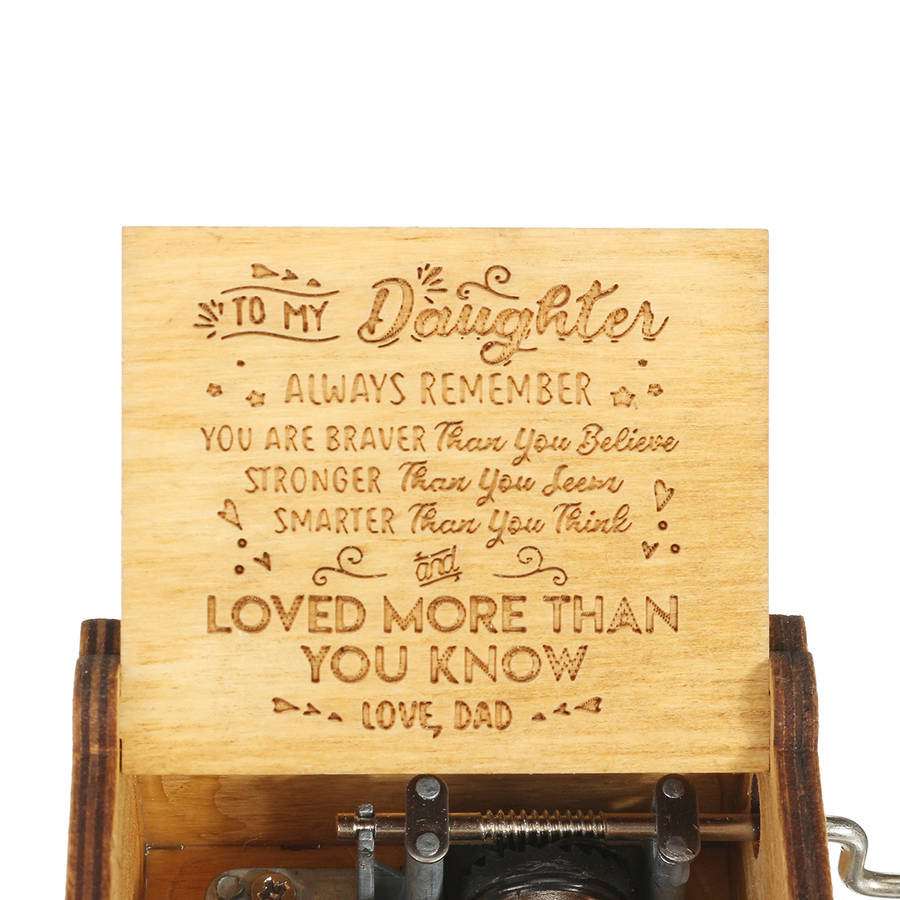 TO MY Daughter
ALWAYS REMEMBER
YOU ARE BRAVER Than You Believe
STRONGER Than You Seem
SMARTER Than You Think
and
LOVED MORE THAN
YOU KNOW
LOVE, DAD